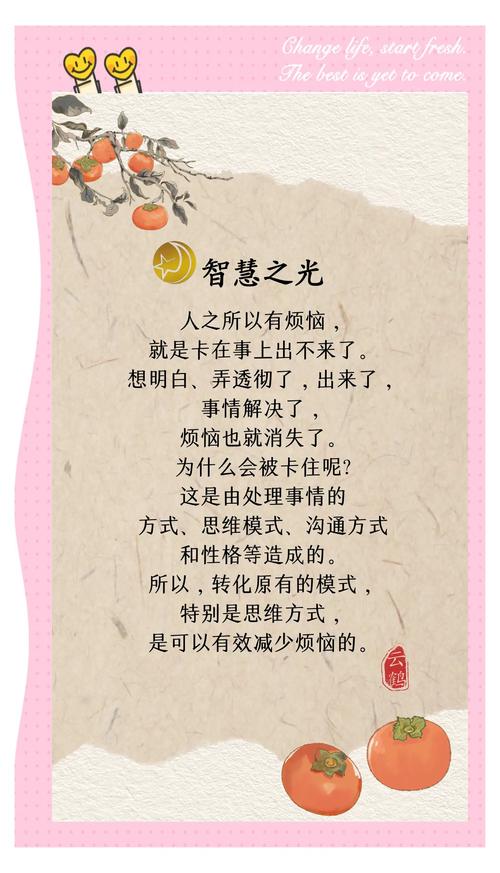 Change life, start fresh.
The best is yet to come.
智慧之光
人之所以有烦恼，
就是卡在事上出不来了。
想明白、弄透彻了，出来了，
事情解决了，
烦恼也就消失了。
为什么会被卡住呢?
这是由处理事情的
方式、思维模式、沟通方式
和性格等造成的。
所以，转化原有的模式，
特别是思维方式，
是可以有效减少烦恼的。
云鹤